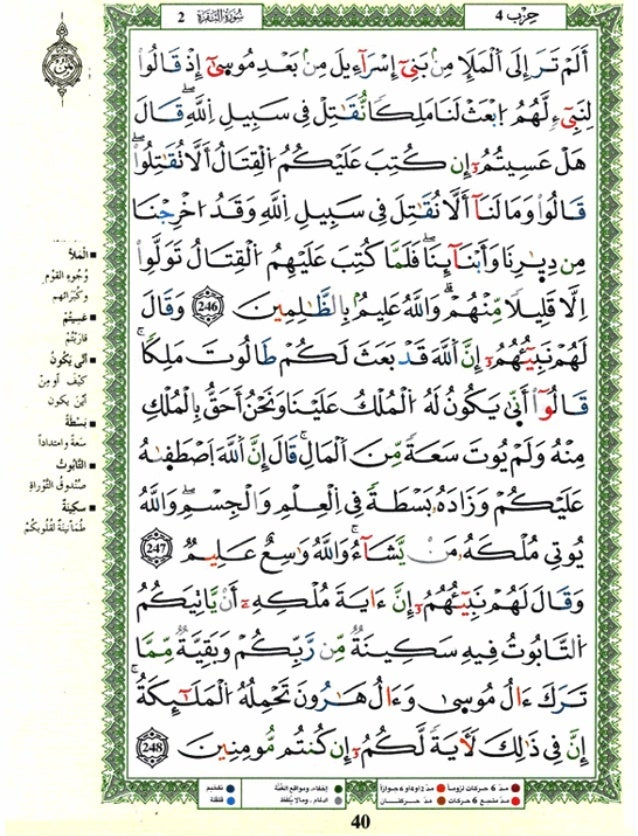 حزب 4
سُورَةُ البَقَرَة 2
أَلَمْ تَرَ إِلَى اَ۬لْمَلَإِ مِنۢ بَنِےٓ إِسْرَآءِيلَ مِنۢ بَعْدِ مُوس۪يٓ إِذْ قَالُواْ
لِنَبِےٓءٖ لَّهُمُ اُ۪بْعَثْ لَنَا مَلِكاٗ نُّقَٰتِلْ فِے سَبِيلِ اِ۬للَّهِۖ قَالَ
هَلْ عَسِيتُمُۥٓ إِن كُتِبَ عَلَيْكُمُ اُ۬لْقِتَالُ أَلَّا تُقَٰتِلُواْۖ
قَالُواْ وَمَا لَنَآ أَلَّا نُقَٰتِلَ فِے سَبِيلِ اِ۬للَّهِ وَقَدُ ا۟خْرِجْنَا
مِن دِيٰ۪رِنَا وَأَبْنَآئِنَاۖ فَلَمَّا كُتِبَ عَلَيْهِمُ اُ۬لْقِتَالُ تَوَلَّوِاْ
اِلَّا قَلِيلاٗ مِّنْهُمْۖ وَاللَّهُ عَلِيمُۢ بِالظَّٰلِمِينَ 246 وَقَالَ
لَهُمْ نَبِيٓـُٔهُمُۥٓ إِنَّ اَ۬للَّهَ قَدْ بَعَثَ لَكُمْ طَالُوتَ مَلِكاٗۚ
قَالُوٓاْ أَنّ۪يٰ يَكُونُ لَهُ اُ۬لْمُلْكُ عَلَيْنَا وَنَحْنُ أَحَقُّ بِالْمُلْكِ
مِنْهُ وَلَمْ يُوتَ سَعَةٗ مِّنَ اَ۬لْمَالِۚ قَالَ إِنَّ اَ۬للَّهَ اَ۪صْطَف۪يٰهُ
عَلَيْكُمْ وَزَادَهُۥ بَسْطَةٗ فِے اِ۬لْعِلْمِ وَالْجِسْمِۖ وَاللَّهُ
يُوتِے مُلْكَهُۥ مَنْ يَّشَآءُۚ وَاللَّهُ وَٰسِعٌ عَلِيمٞ 247
وَقَالَ لَهُمْ نَبِيٓـُٔهُمُۥٓ إِنَّ ءَايَةَ مُلْكِهِۦٓ أَنْ يَّاتِيَكُمُ
اُ۬لتَّابُوتُ فِيهِ سَكِينَةٞ مِّن رَّبِّكُمْ وَبَقِيَّةٞ مِّمَّا
تَرَكَ ءَالُ مُوس۪يٰ وَءَالُ هَٰرُونَ تَحْمِلُهُ اُ۬لْمَلَٰٓئِكَةُۚ
إِنَّ فِے ذَٰلِكَ لَأٓيَةٗ لَّكُمُۥٓ إِن كُنتُم مُّومِنِينَ 248
الْمَلَأ
وُجُوهِ القَوْمِ
وكُبَرَائِهم
عَسِيتُمْ
قارَبْتُمْ
أَنَّى يَكُونُ
كَيْفَ أو مِنْ
أيْنَ يكون
بَسْطَةً
سَعةً وامتداداً
التَّابُوتُ
صُنْدوقُ التَّوْراةِ
سكِينَةٌ
طُمَأْنِينَةٌ لقُلُوبِكُمْ
مدّ 6 حركات لزوماً
مدّ 2 أو 4 أو 6 جوازاً
مدّ مشبع 6 حركات
مدّ حركتان
إخفاء، ومواقع الغُنَّة
ادغام، وما لا يُلفَظ
تفخيم
قلقلة
40